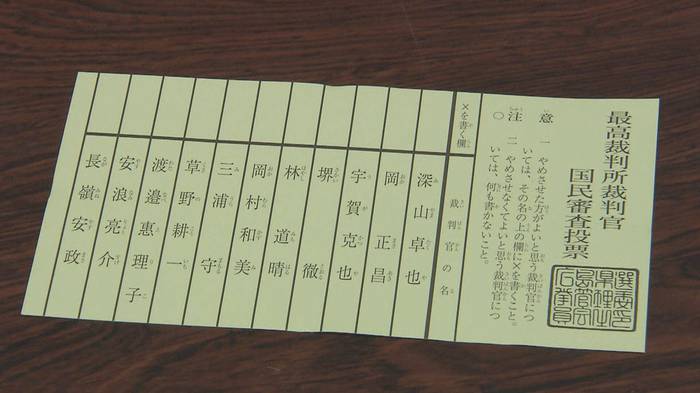 最高裁判所裁判官
国民審査投票
○注意
一 やめさせた方がよいと思う裁判官につ
いては、その名の上の欄に×を書くこと。
二 やめさせなくてよいと思う裁判官につ
いては、何も書かないこと。
×を書く欄
裁判官の名
深山卓也
岡正昌
宇賀克也
堺徹
林道晴
岡村和美
三浦守
草野耕一
渡邉惠理子
安浪亮介
長嶺安政